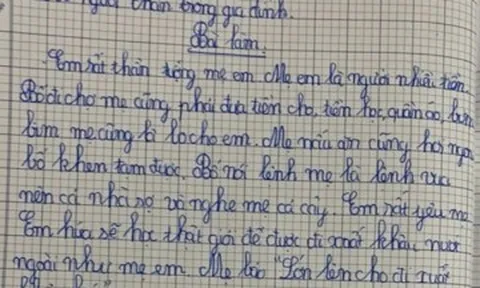 người thân trong gia đình.
Bài làm.
Em rất thần tượng mẹ em. Mẹ em là người nhiều tiền.
Bố đi chợ mẹ cũng phải đưa tiền cho, tiền học, quần áo, bim
bim mẹ cũng lo cho em. Mẹ nấu ăn cũng hơi ngon
bố khen tạm được. Bố nói lệnh mẹ là lệnh vua
nên cả nhà sợ và nghe mẹ cả cây. Em rất yêu mẹ
Em hứa sẽ học thật giỏi để được đi xuất khẩu nước
ngoài như mẹ em. Mẹ bảo "Lớn lên cho đi xuất